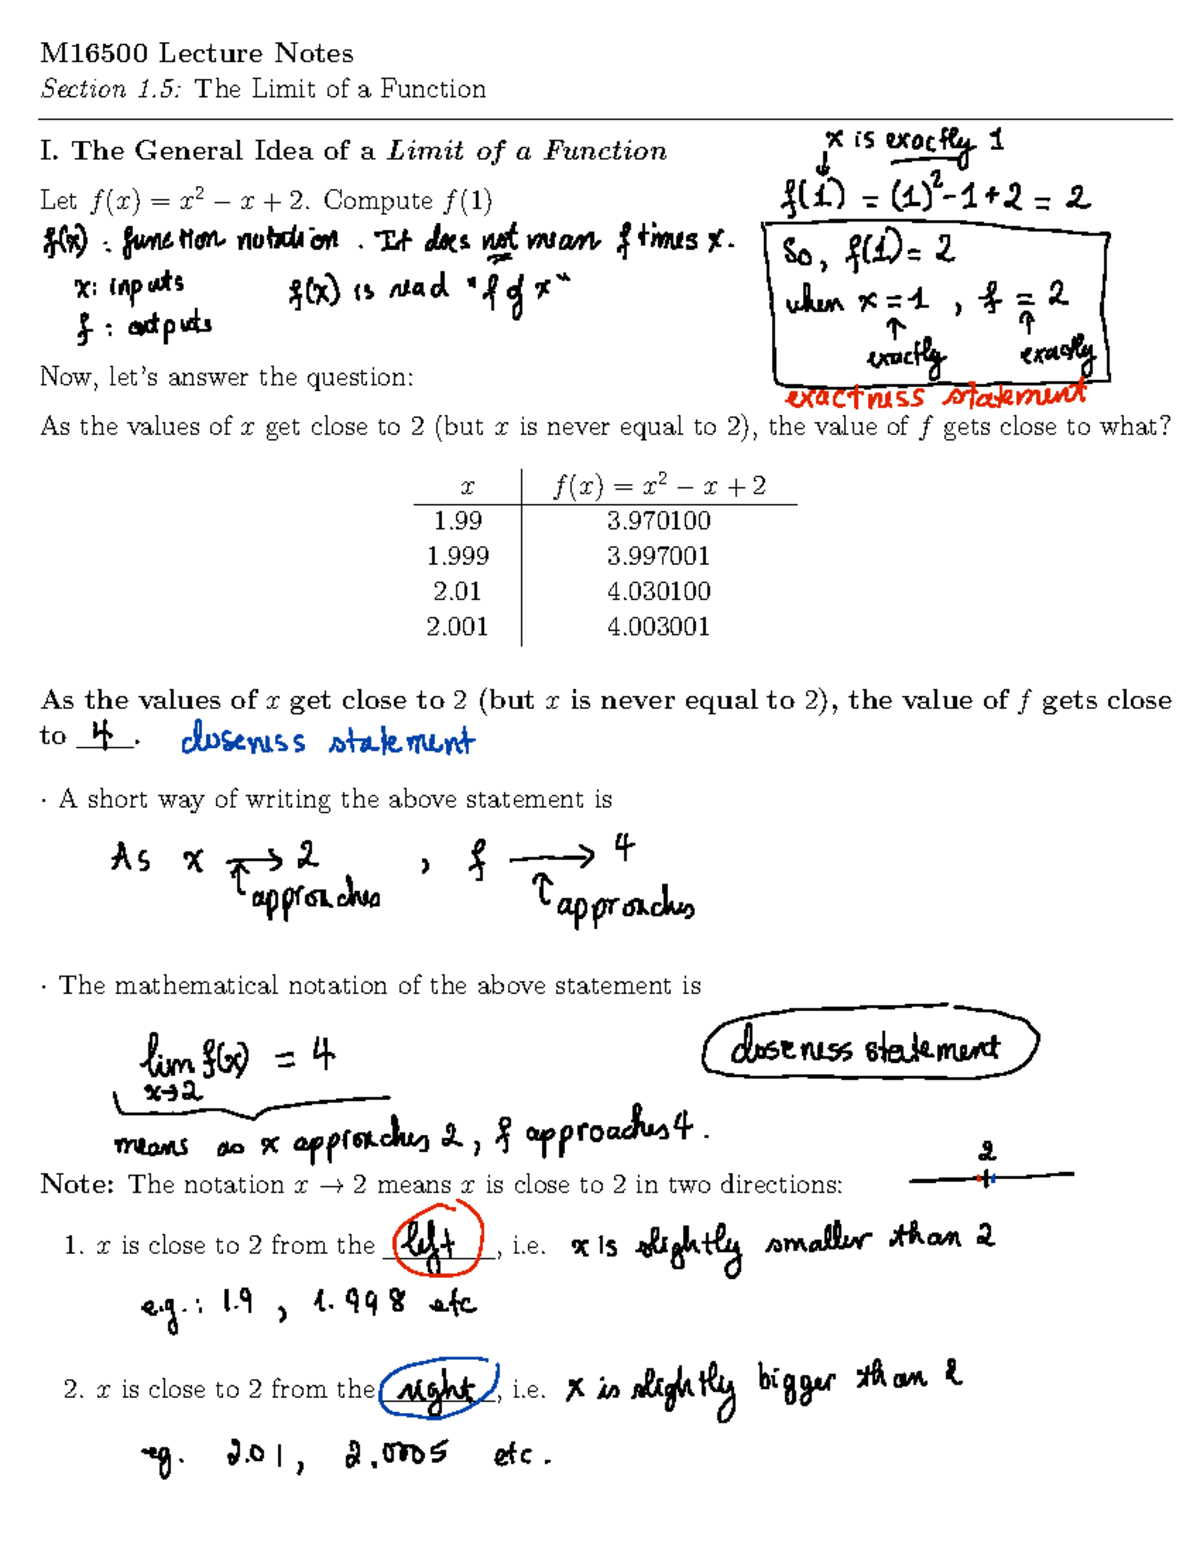 M16500 Lecture Notes
Section 1.5: The Limit of a Function
I. The General Idea of a Limit of a Function
x is exactly 1
Let f(x) = x² − x + 2. Compute f(1)
f(1) = (1)² - 1 + 2 = 2
f(x) : function notation. It does not mean f times x.
x: inputs
f(x) is read "f of x"
f : outputs
So, f(1) = 2
when x = 1 , f = 2
exactly exactly
exactness statement
Now, let's answer the question:
As the values of x get close to 2 (but x is never equal to 2), the value of f gets close to what?
x f(x) = x² − x + 2
1.99 3.970100
1.999 3.997001
2.01 4.030100
2.001 4.003001
As the values of x get close to 2 (but x is never equal to 2), the value of f gets close
to 4. closeness statement
· A short way of writing the above statement is
As x → 2 , f → 4
↑ approaches ↑ approaches
· The mathematical notation of the above statement is
closeness statement
lim f(x) = 4
x→2
means as x approaches 2, f approaches 4.
2
Note: The notation x → 2 means x is close to 2 in two directions:
1. x is close to 2 from the left, i.e. x is slightly smaller than 2
e.g.: 1.9 , 1.998 etc
2. x is close to 2 from the right, i.e. x is slightly bigger than 2
eg. 2.01, 2.0005 etc.